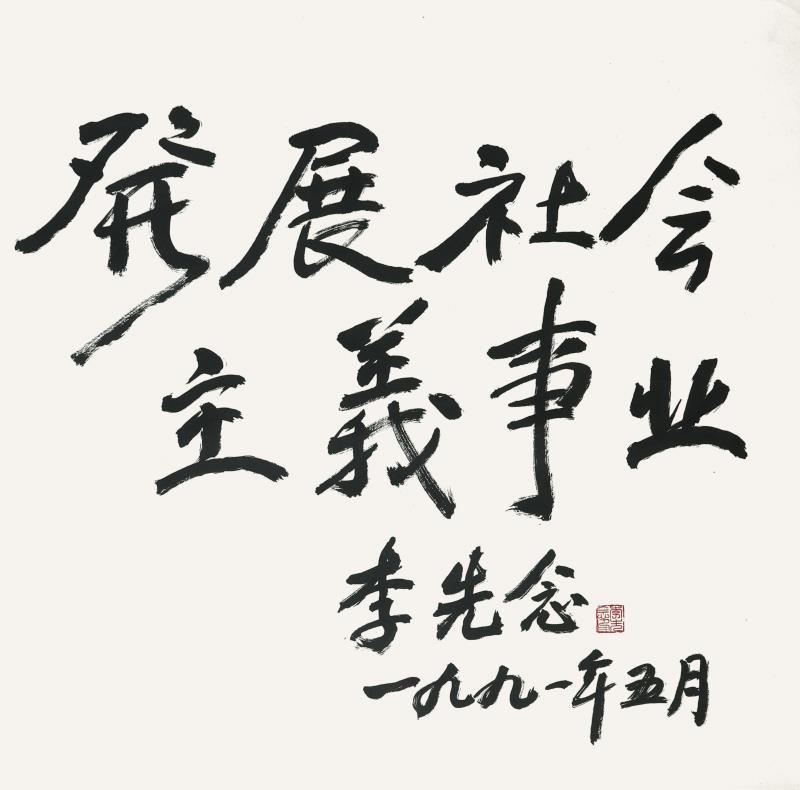 發展社会
主義事业
李先念
一九九一年五月